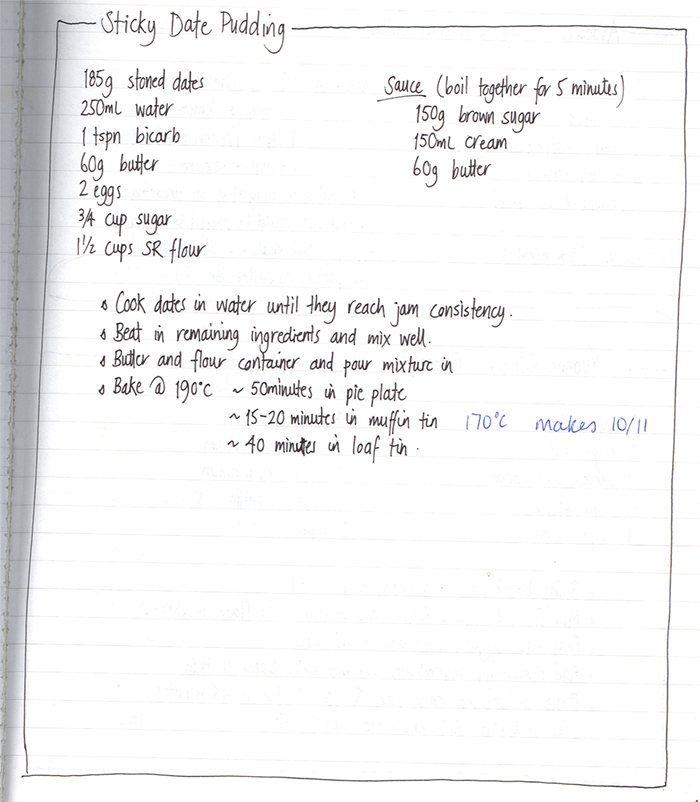 Sticky Date Pudding
185g stoned dates
250mL water
1 tspn bicarb
60g butter
2 eggs
3/4 cup sugar
1 1/2 cups SR flour
Sauce (boil together for 5 minutes)
150g brown sugar
150mL cream
60g butter
Cook dates in water until they reach jam consistency.
Beat in remaining ingredients and mix well.
Butter and flour container and pour mixture in
Bake @ 190°C ~ 50minutes in pie plate
~ 15-20 minutes in muffin tin 170°C makes 10/11
~ 40 minutes in loaf tin.